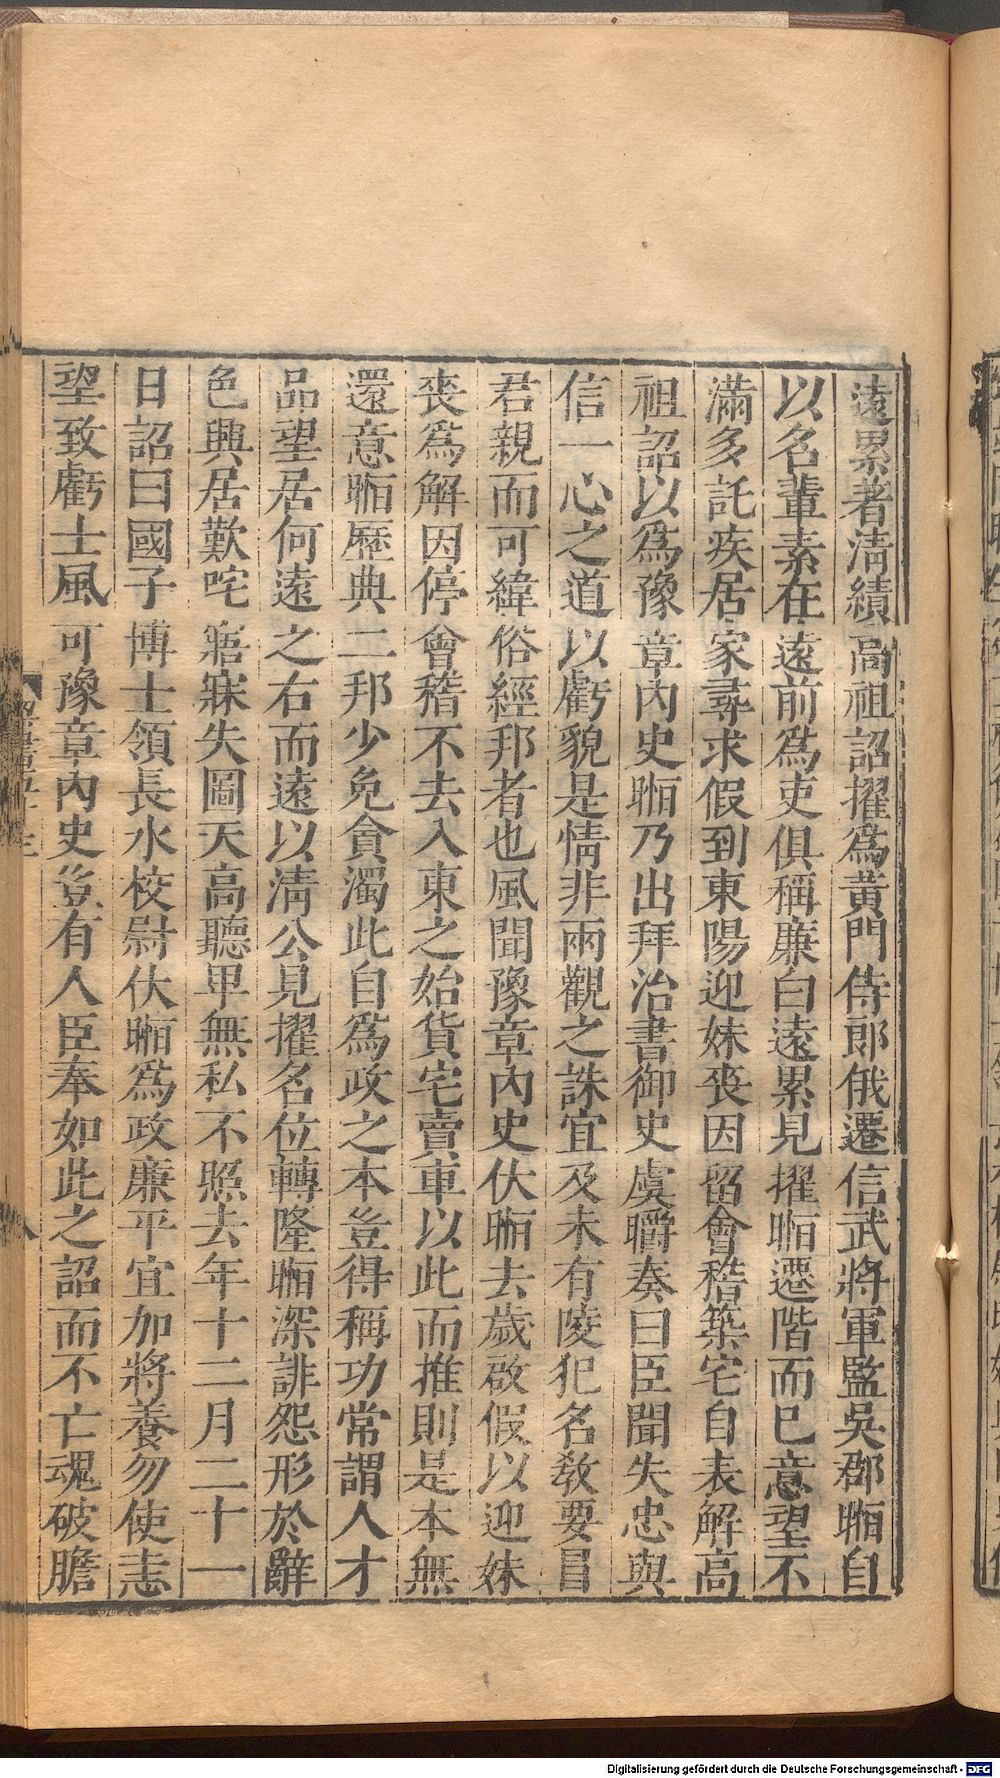 遠累著淸績高祖詔擢爲黃門侍郎俄遷信武將軍監吳郡暅自
以名輩素在遠前爲吏俱稱廉白遠累見擢暅遷階而已意望不
滿多託疾居家尋求假到東陽迎妹喪因留會稽築宅自表解高
祖詔以爲豫章內史暅乃出拜治書御史虞㬭奏曰臣聞失忠與
信一心之道以虧貌是情非兩觀之誅宜及未有陵犯名敎要冒
君親而可緯俗經邦者也風聞豫章內史伏暅去歲啟假以迎妹
喪爲解因停會稽不去入東之始貨宅賣車以此而推則是本無
還意暅歷典二邦少免貪濁此自爲政之本豈得稱功常謂人才
品望居何遠之右而遠以淸公見擢名位轉隆暅深誹怨形於辭
色興居歎咤寤寐失圖天高聽卑無私不照去年十二月二十一
日詔曰國子博士領長水校尉伏暅爲政廉平宜加將養勿使恚
望致虧士風可豫章內史豈有人臣奉如此之詔而不亡魂破膽
八
Digitalisierung gefördert durch die Deutsche Forschungsgemeinschaft - DFG